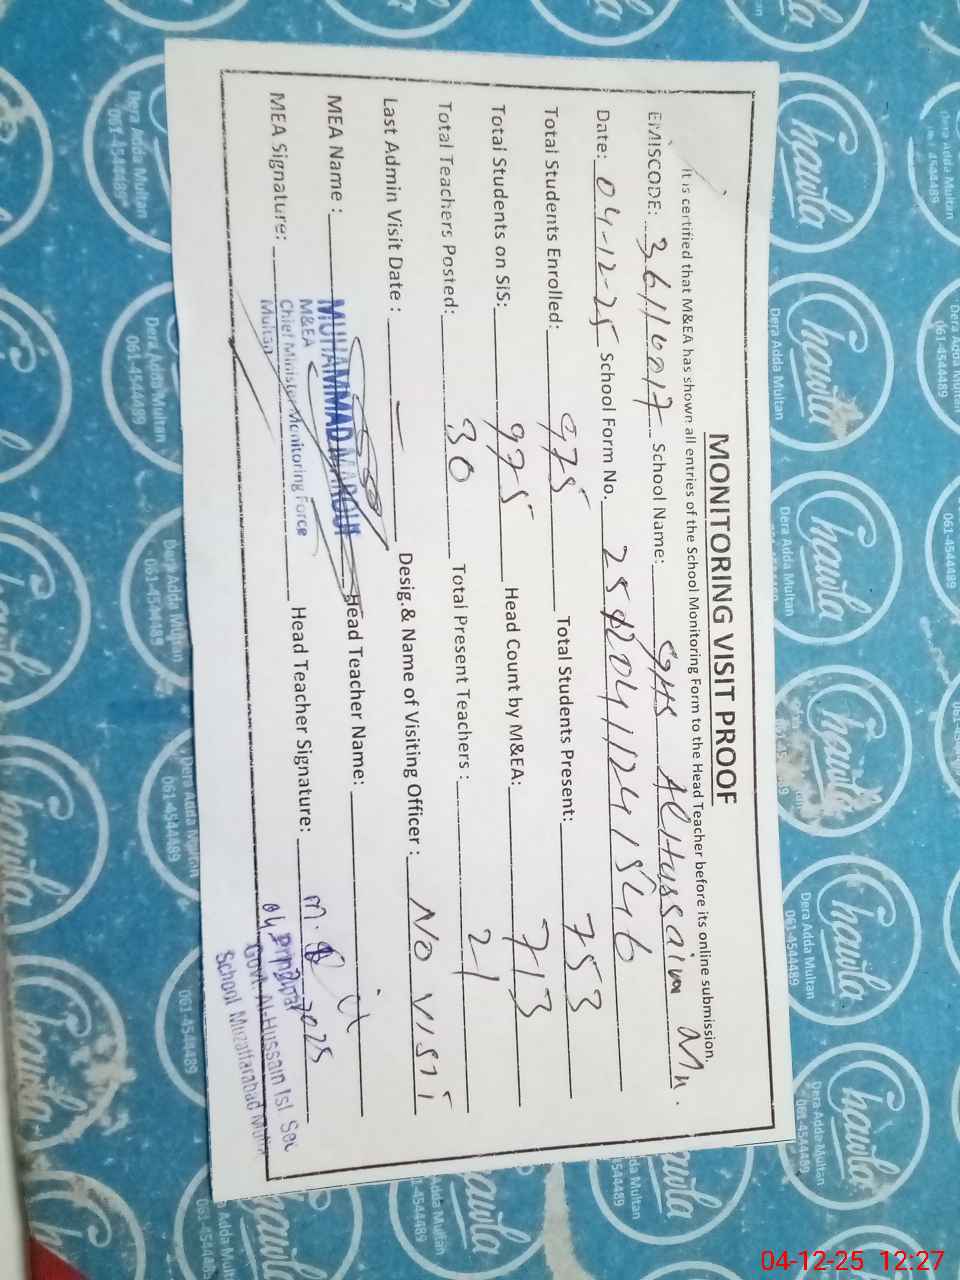 MONITORING VISIT PROOF
It is certified that M&EA has shown all entries of the School Monitoring Form to the Head Teacher before its online submission.
EMISCODE: 36110017 School Name: GHS Al Hussain Mu.
Date: 04-12-25 School Form No. 25120411241546
Total Students Enrolled: 975 Total Students Present: 753
Total Students on SIS: 975 Head Count by M&EA: 713
Total Teachers Posted: 30 Total Present Teachers: 21
Last Admin Visit Date: — Desig.& Name of Visiting Officer: No Visit
MEA Name: MUHAMMAD MAROUF Head Teacher Name:
M&EA
Chief Minister Monitoring Force
Multan
MEA Signature: Head Teacher Signature:
Principal
Govt. Al-Hussain Isl Sec
School Muzaffarabad Multan
Chawla
Dera Adda Multan
061-4544489
04-12-25 12:27